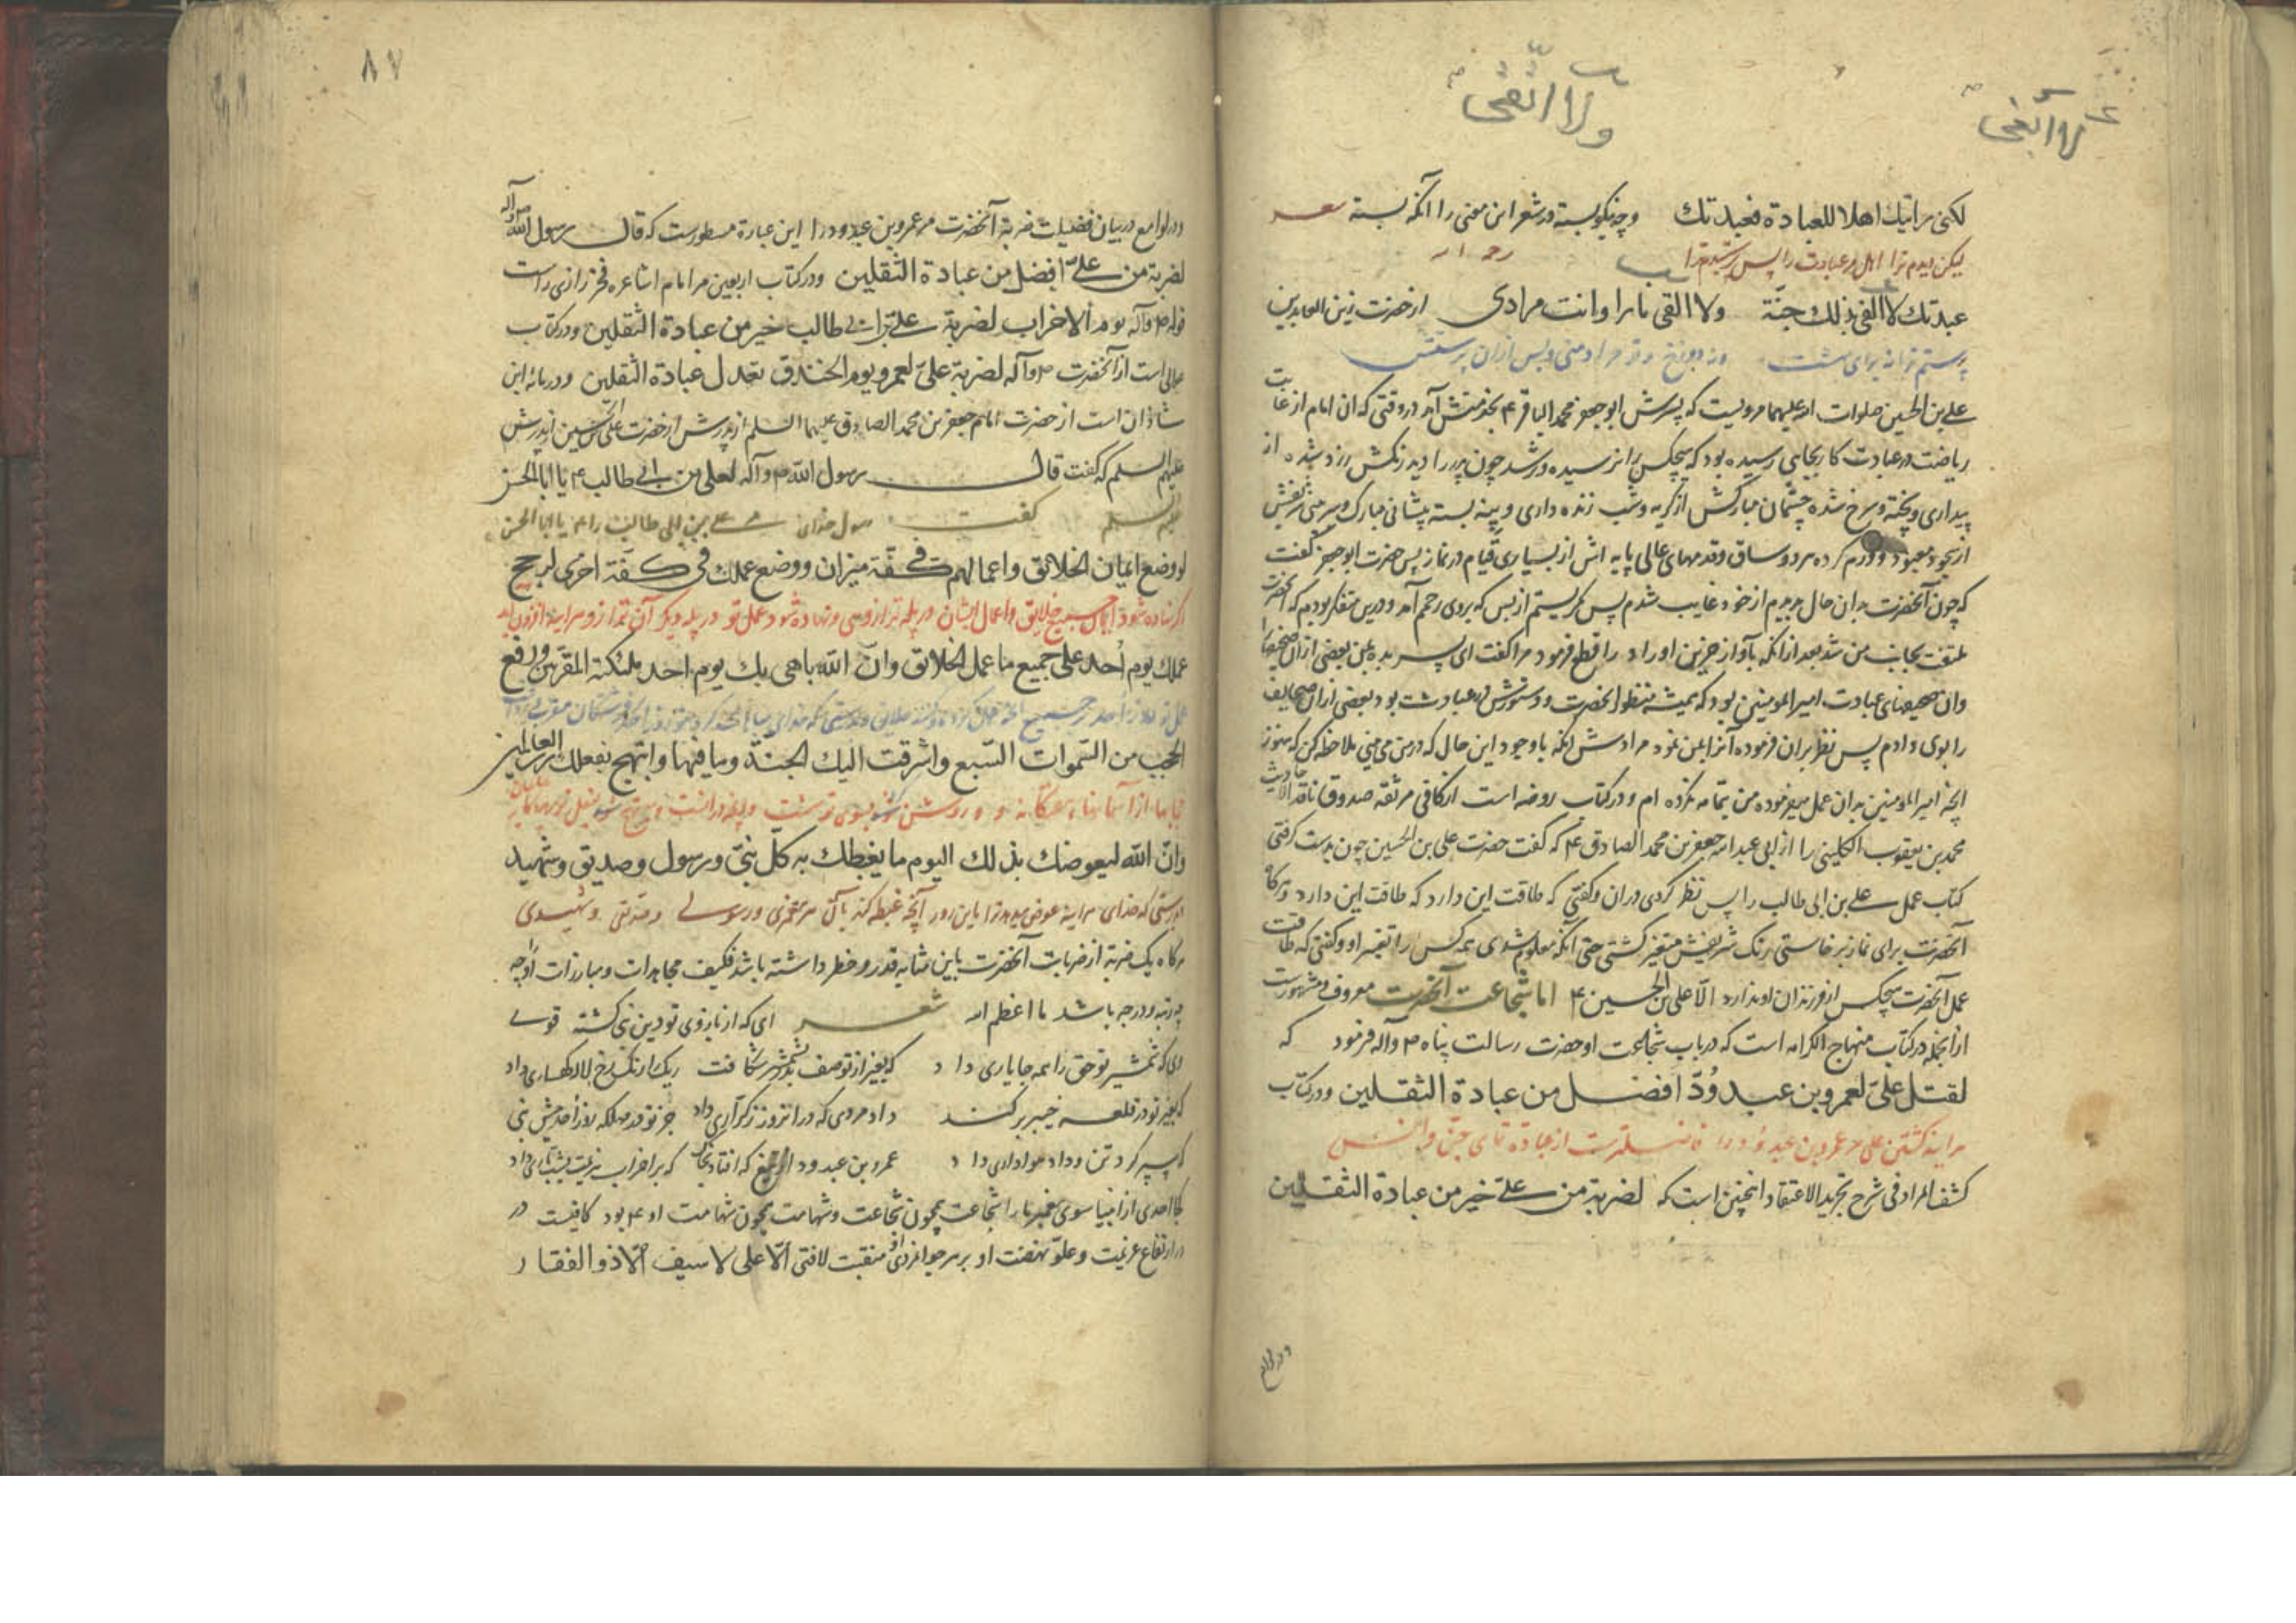 لا ابتغی
ولا اتقی
لکن رایتك اهلا للعبادة فعبدتك وچه نیکو بسته در شعر این معنی را آنکه بسته شعر
لیکن دیدم ترا اهل مر عبادت را پس پرستیدم ترا
عبدتك لا ابتغی بذلك جنّة ولا اتقی نارا وانت مرادی از حضرت زین العابدین
پرستم ترا نه برای بهشت
علی بن الحسین صلوات الله علیهما مرویست که پسرش ابو جعفر محمد الباقر ع بخدمتش آمد در وقتی که ان امام از غایت
ریاضت در عبادت کار بجایی رسیده بود که هیچکس را نرسیده ورشد چون پدر را دید رنکش زرد شده از
بیداری و پخته و سرخ شده چشمان مبارکش از کریه و شب زنده داری و پینه بسته پیشانی مبارك و سر بینی شریفش
از سجود معبود و ورم کرده هر دو ساق و قدمهای عالی پایه اش از بسیاری قیام در نماز پس حضرت ابو جعفر گفت
که چون آنحضرت بدان حال دیدم از خود غایب شدم پس بکریستم از بس که بروی رحمم آمد و درین متفکر بودم که آنحضرت
ملتفت بجانب من شد بعد از انکه بآواز حزین اوراد را قطع فرمود مرا گفت ای پسر بده بمن بعضی از ان صحیفها
وان صحیفهای عبادت امیر المومنین بود که همیشه منظور آنحضرت و دستورش در عبادت بود بعضی از ان صحایف
را بوی دادم پس نظر بران فرموده آنرا بمن نمود مرادش انکه با وجود این حال که در من می بینی ملاحظه کن که هنوز
انچه امیر المومنین بدان عمل میفرموده من بتمامه نکرده ام و در کتاب روضه است از کافی مر ثقه صدوق ناقد الاحادیث
محمد بن یعقوب الکلینی را از ابی عبد الله جعفر بن محمد الصادق ع که گفت حضرت علی بن الحسین چون بدست کرفتی
کتاب عمل علی بن ابی طالب را پس نظر کردی دران و گفتی که طاقت این دارد که طاقت این دارد و هرکاه
آنحضرت برای نماز برخاستی رنك شریفش متغیر کشتی حتی آنکه معلوم شدی همه کس را تغیر او و کفتی که طاقت
عمل آنحضرت هیچکس از فرزندان او ندارد الّا علی بن الحسین ع اما شجاعت آنحضرت معروف و مشهورست
از انجمله در کتاب منهاج الکرامه است که در باب شجاعت او حضرت رسالت پناه ص وآله فرمود که
لقتل علیّ لعمرو بن عبدودّ افضل من عبادة الثقلین و در کتاب
هراینه کشتن علی مر عمرو بن عبدود را فاضلترست از عبادتهای جن و انس
کشف المراد فی شرح تجرید الاعتقاد اینچنین است که لضربة من علیّ خیر من عبادة الثقلین
ودر لوامع
۸۷
ودر لوامع در بیان فضیلت ضربة آنحضرت مر عمرو بن عبدود را این عبارة مسطورست که قال رسول الله ص وآله
لضربة من علیّ افضل من عبادة الثقلین و در کتاب اربعین مر امام اشاعره فخر رازی راست
قوله ص وآله یوم الاحزاب لضربة علی بن ابی طالب خیر من عبادة الثقلین و در کتاب
است از آنحضرت ص وآله لضربة علیّ لعمرو یوم الخندق تعدل عبادة الثقلین و در مائه ابن
شاذان است از حضرت امام جعفر بن محمد الصادق علیهما السلم از پدرش از حضرت علی بن الحسین از پدرش
علیهم السلم که گفت قال رسول الله ص وآله لعلی بن ابی طالب ع یا ابا الحسن
علیهم السلم کفت رسول خدای علی بن ابی طالب را ع یا ابا الحسن
لو وضع ایمان الخلائق واعمالهم فی کفّة میزان ووضع عملك فی کفّة اخری لرجح
اگر نهاده شود ایمان جمیع خلایق و اعمال ایشان در پله ترازوی و نهاده شود عمل تو در پله دیکر آن ترازو هراینه افزون اید
عملك یوم أحد علی جمیع ما عمل الخلائق وانّ الله باهی بك یوم احد ملئکته المقربین ورفع
عمل تو روز احد بر جمیع انچه عمل کرده
الحجب من السّموات السّبع واشرقت الیك الجنّة وما فیها وابتهج بفعلك رب العالمین
حجابها از آسمانهای هفتکانه و روشن کشت بسوی تو بهشت
وانّ الله لیعوضك بذلك الیوم ما یغبطك به کلّ نبیّ ورسول وصدیق وشهید
بدرستی که خدای هراینه عوض میدهد ترا باین روز آنچه غبطه کند بآن هر پیغمبری و رسولی و صدیقی و شهیدی
هرکاه یك ضربة از ضربات آنحضرت باین مثابه قدر و خطر داشته باشد فکیف مجاهدات و مبارزات او چه
مرتبه و درجه باشد ما اعظم الله شعر ای که از بازوی تو دین نبی کشته قوی
ای که شمشیر تو حق را همه جا یاری داد که بغیر از تو صف بدر بشمشیر شکافت ریك را رنك رخ لاله کهساری داد
که بغیر تو در قلعه خیبر برکند داد مردی که در انروز ز کراری داد جز تو در مهلکه روز احد پیش نبی
که سپر کرد تن و داد هواداری داد عمرو بن عبدود از تیغ که افتاد بخاك که بر احزاب هزیمت بشب تاری داد
کجا احدی از انبیا سوی پیغمبر ما را شجاعت همچون شجاعت و شهامت همچون شهامت او ع بود کافیست در
در ارتفاع عزیمت و علوّ نهضت او بر سر جوانمردی او منقبت لا فتی الّا علی لا سیف الّا ذو الفقار